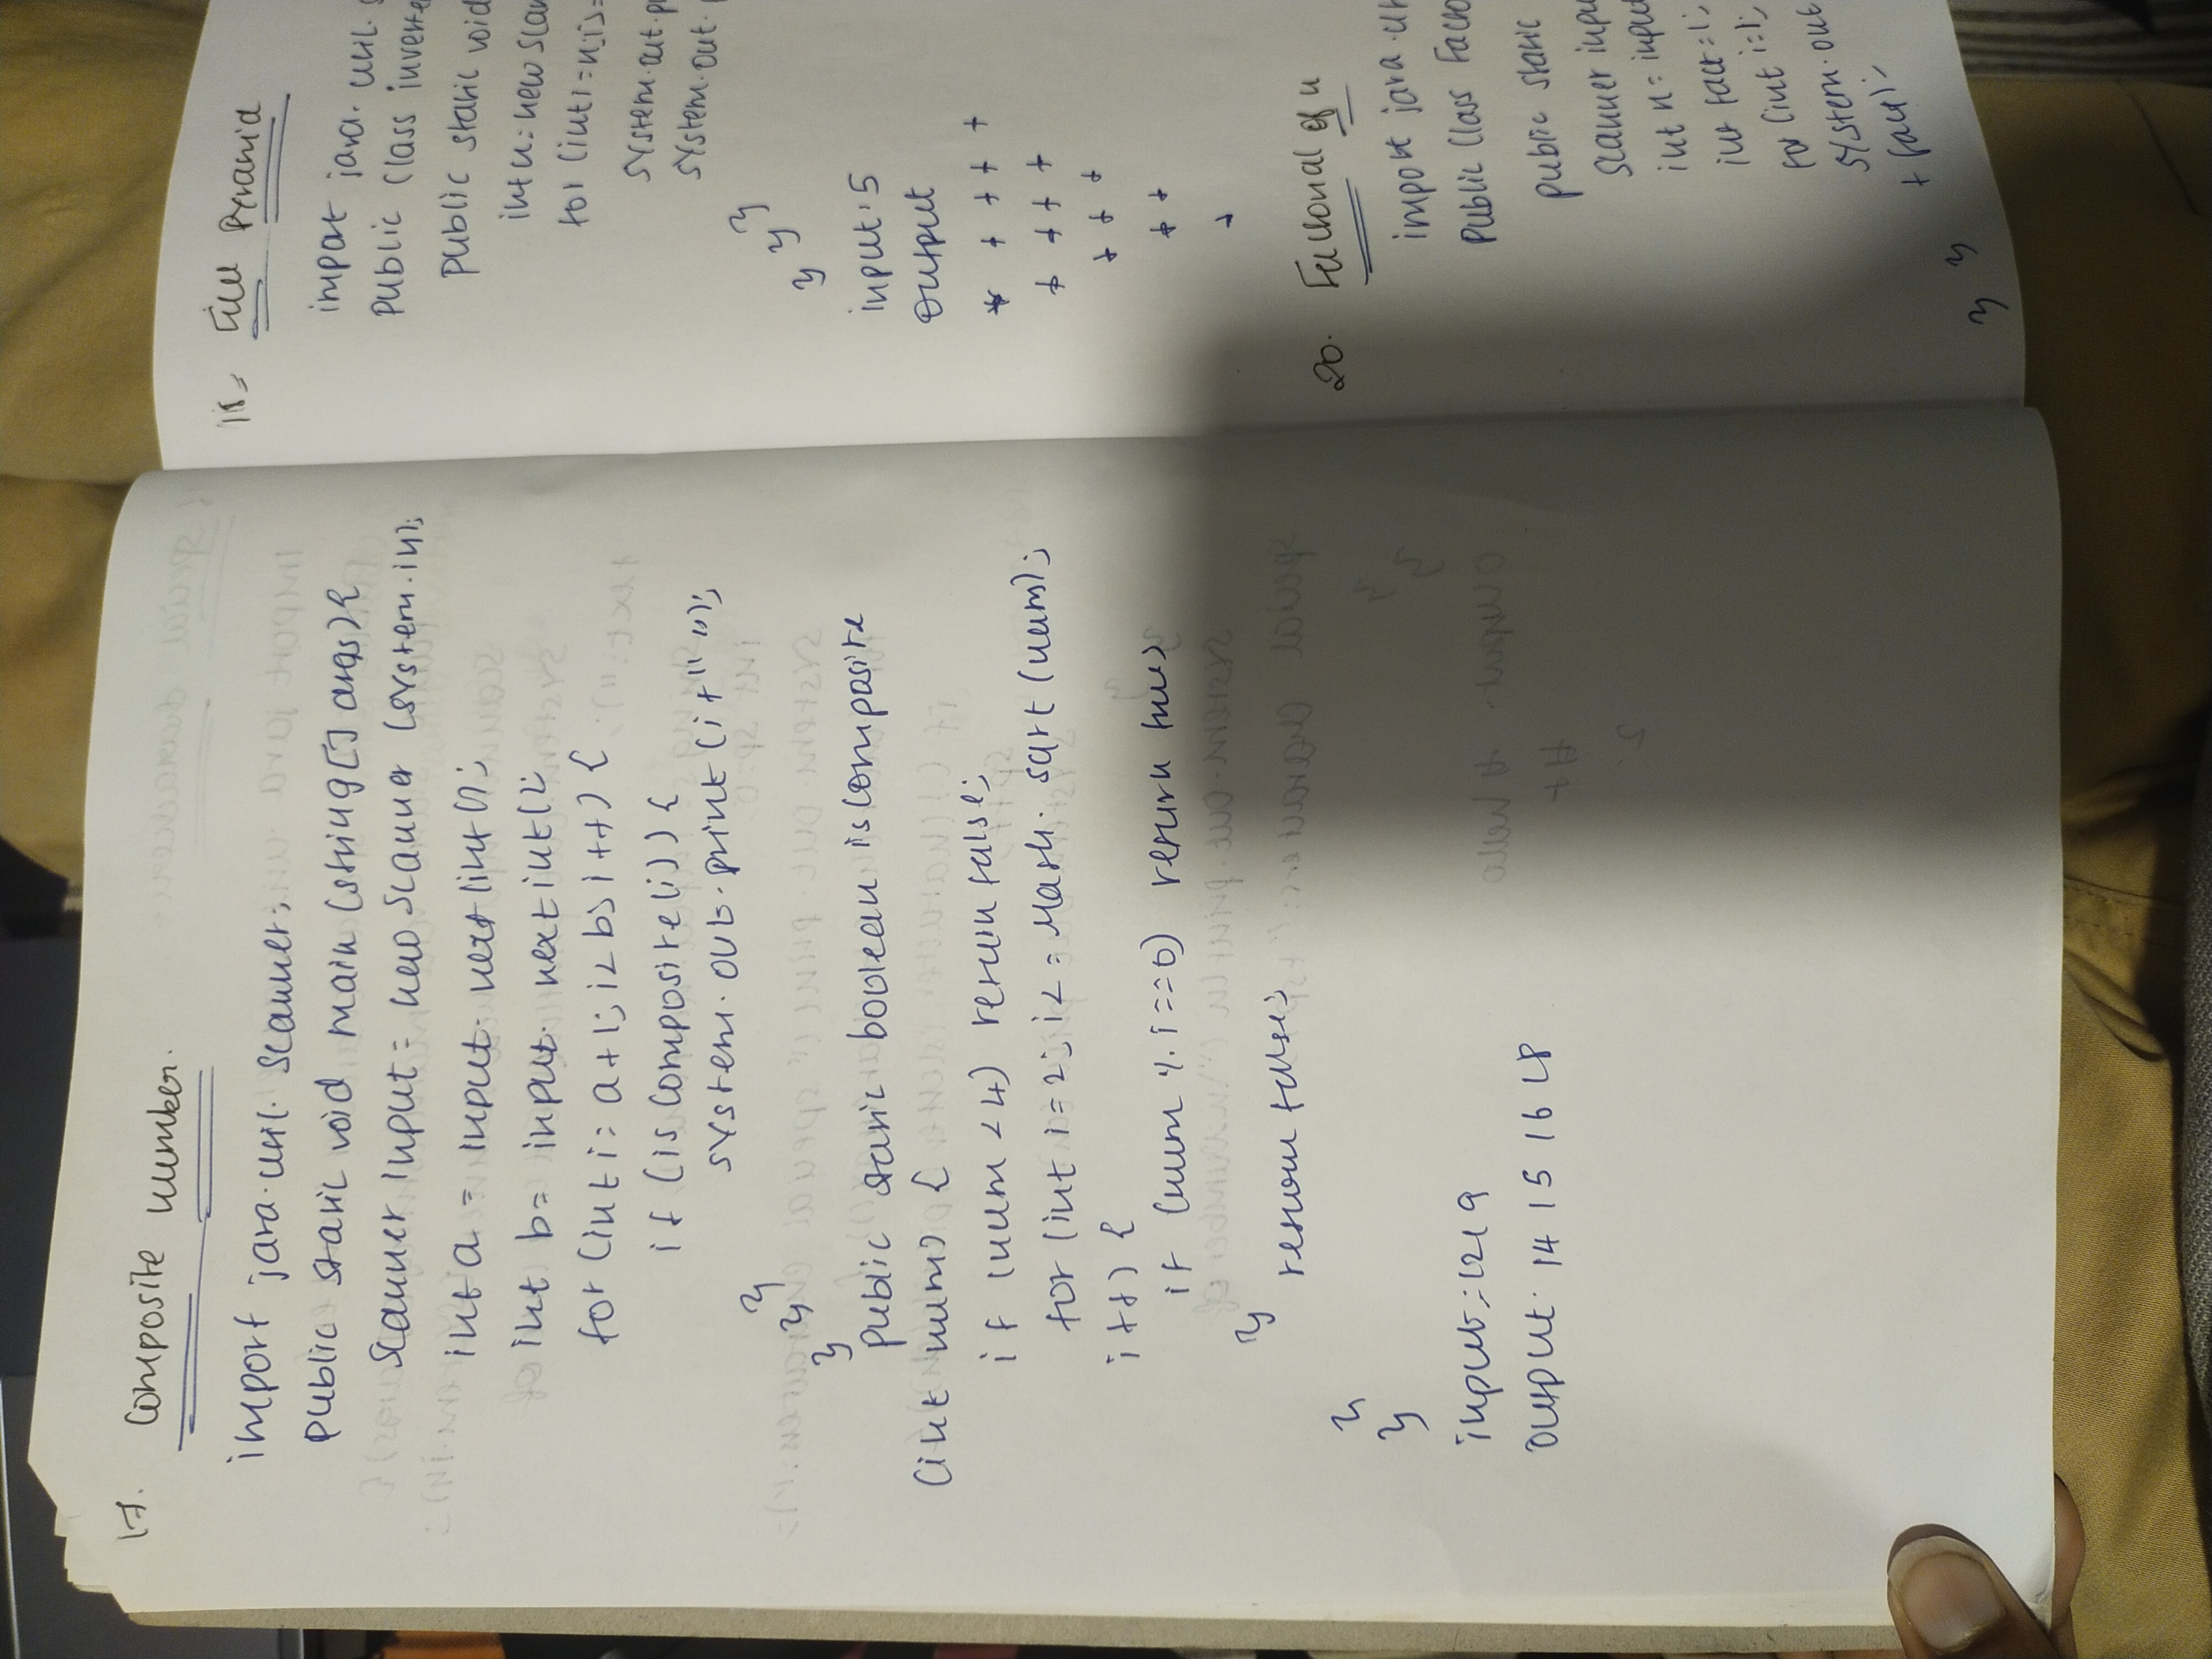 17. Composite number.
import java.util.Scanner;
public static void main (string[] args){
Scanner input = new Scanner (system.in);
int a = input. next(int();
int b= input. nextint();
for (int i= a+1; i< b; i++) {
if (is Composite(i)) {
system.out.print(i+" ");
}
}
}
public static boolean isComposite
(int num) {
if (num <4) return false;
for (int i=2; i<= Math. sqrt (num);
i++) {
if (num %. i==0) return true;
}
return false;
}
}
input: 12 19
output: 14 15 16 18
18. Full Pyramid
import java. util. s
public Class inverte
public static void
int n= new Scan
for (int i=n;i>=
system.out.p
system.out.
}
}
}
input: 5
output
* + + + +
+ + + +
+ + +
+ +
+
20. Factorial of n
import java.ut
public Class Facto
public static
Scanner inpu
int n= input
int fact=1;
for (int i=1;
system.out
+ fact);
} }